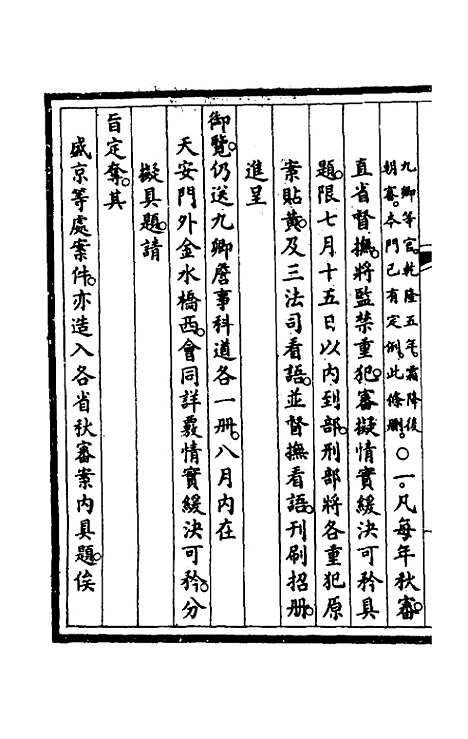 九卿等官。乾隆五年。霜降後
朝審。本門已有定例。此條刪。〇一。凡每年秋審。
直省督撫。將監禁重犯。審擬情實緩決可矜具
題。限七月十五日以內到部。刑部將各重犯原
案貼黃。及三法司看語。並督撫看語。刊刷招冊。
進呈
御覽。仍送九卿詹事科道各一冊。八月內在
天安門外金水橋西。會同詳覈情實緩決可矜。分
擬具題。請
旨定奪。其
盛京等處案件。亦造入各省秋審案內具題。俟